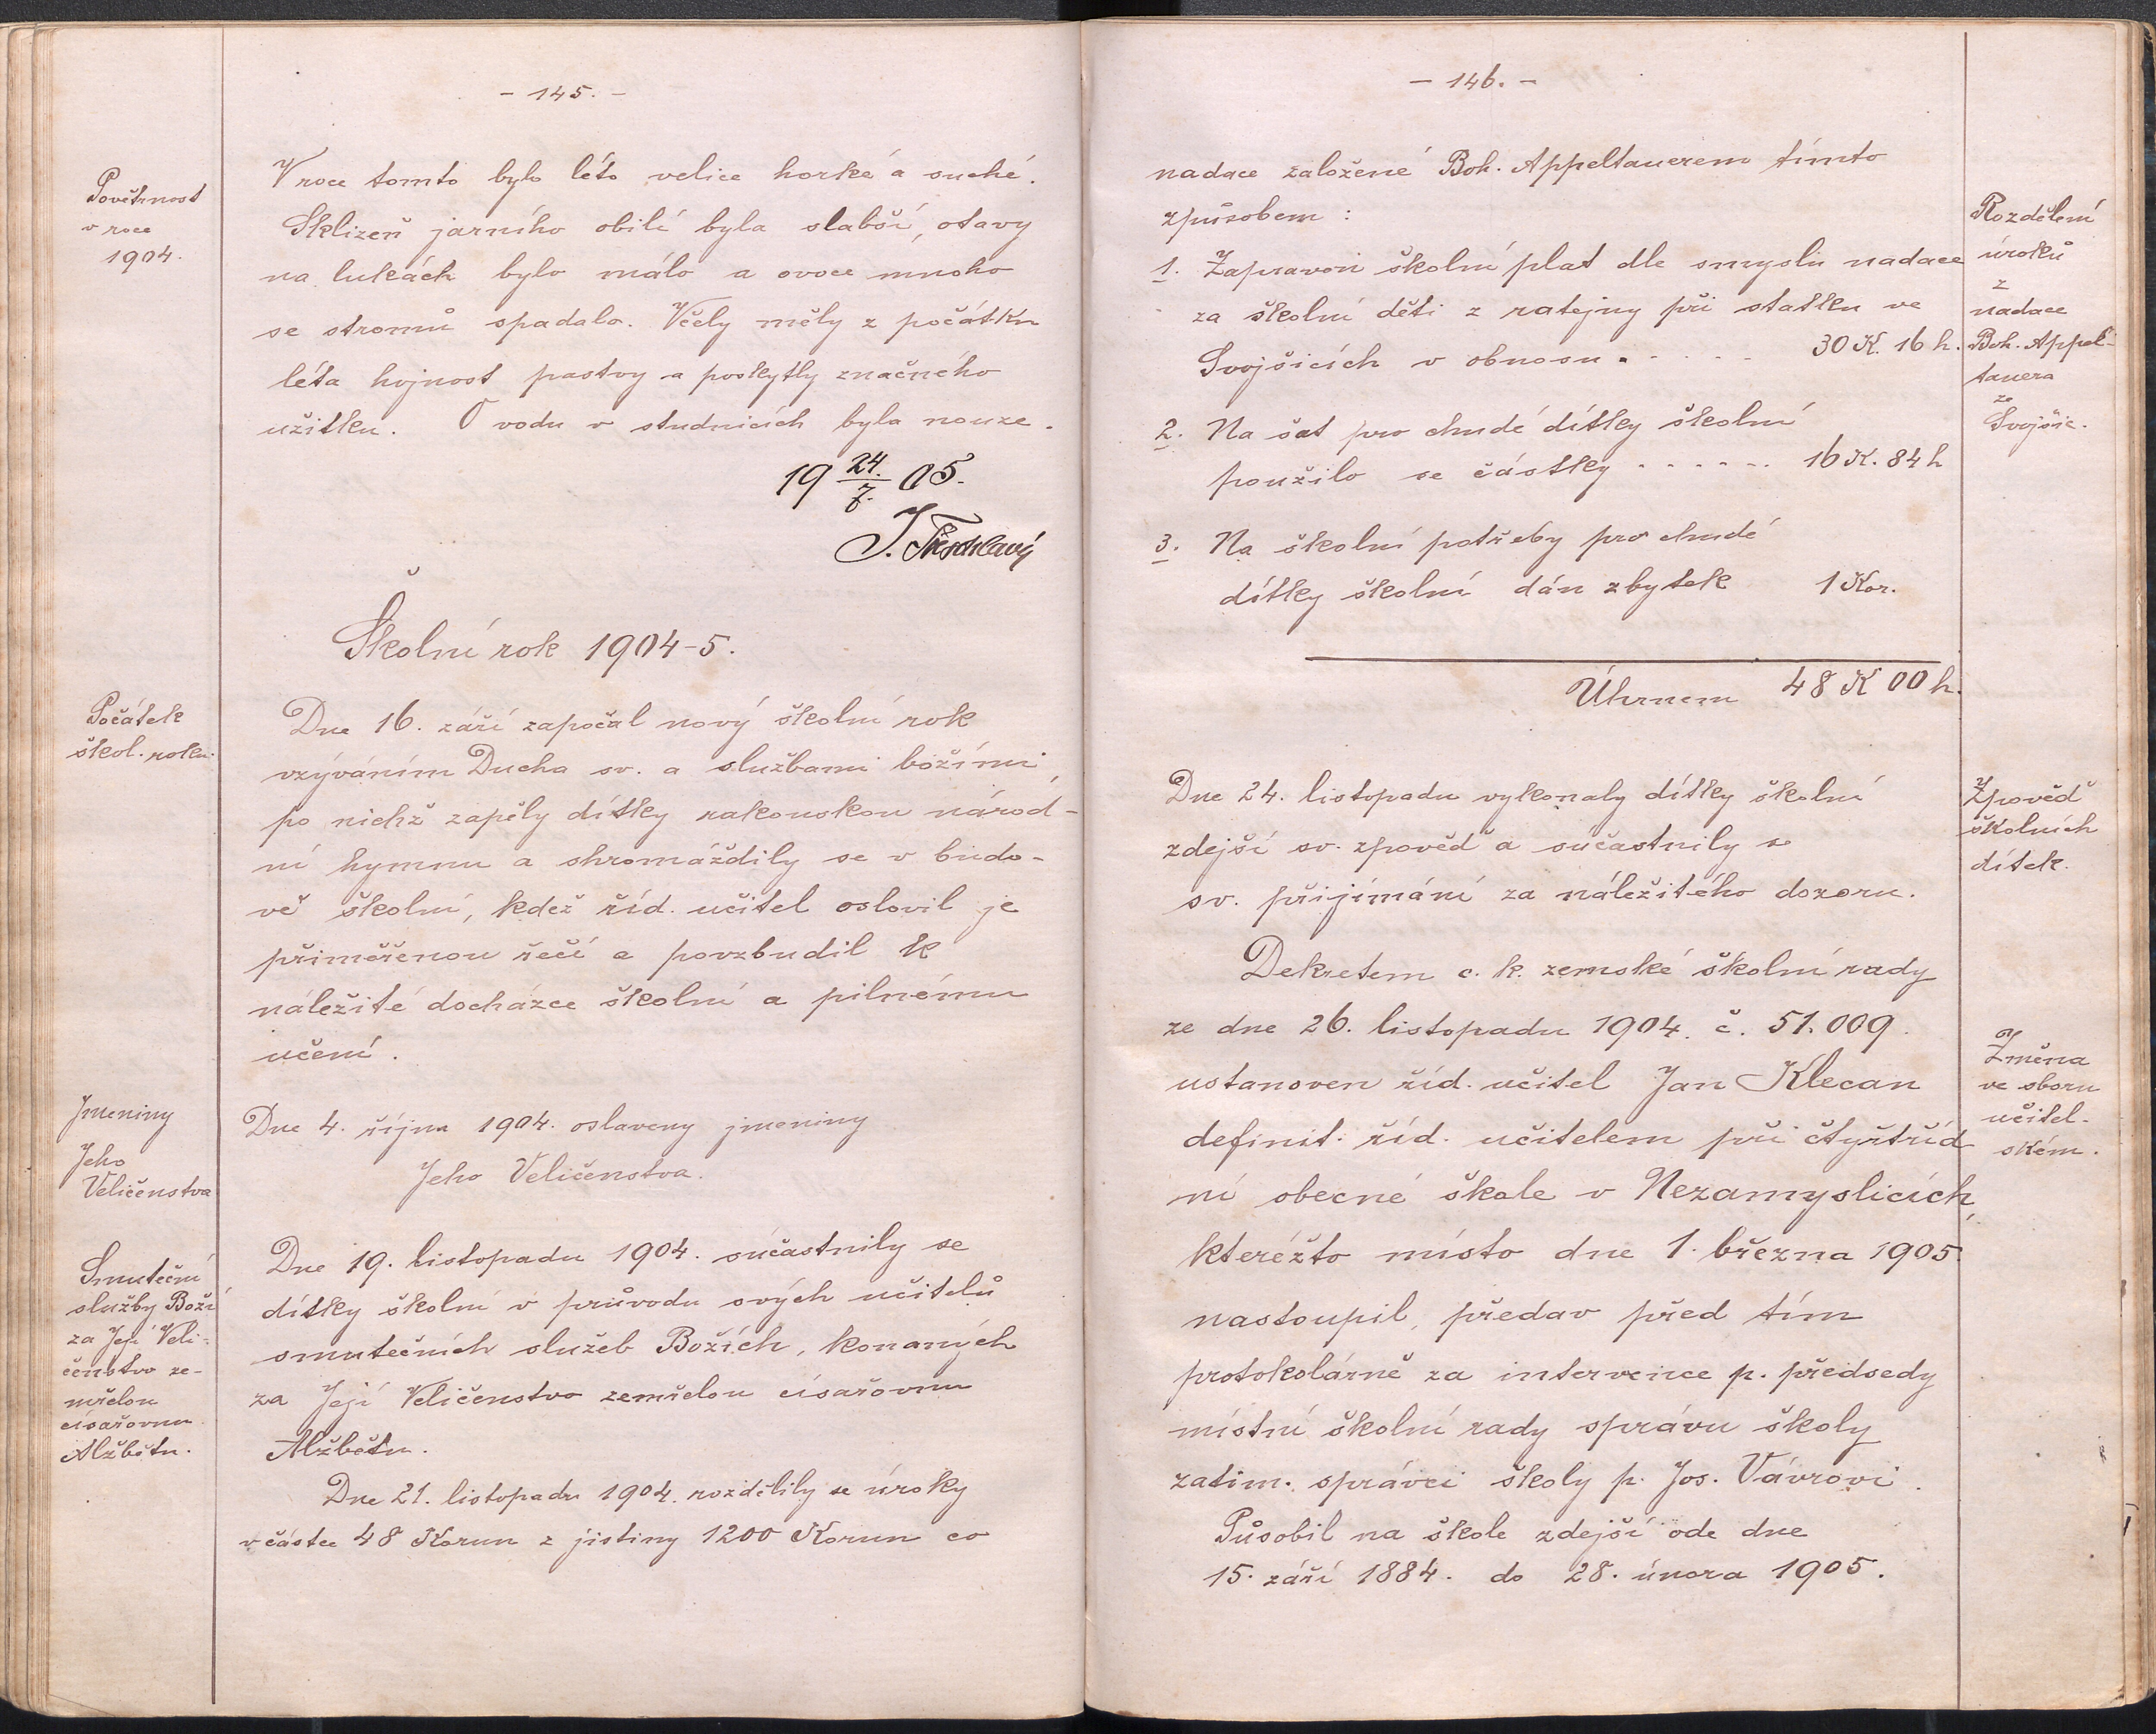 - 145. -
Povětrnost
v roce
1904.
V roce tomto bylo léto velice horké a suché.
Sklizeň jarního obilí byla slabší, otavy
na lukách bylo málo a ovoce mnoho
se stromů spadalo. Včely měly z počátku
léta hojnost pastvy a poskytly značného
užitku. O vodu v studnicích byla nouze.
19 24./7. 05.
Školní rok 1904-5.
Počátek
škol. roku.
Dne 16. září započal nový školní rok
vzýváním Ducha sv. a službami božími,
po nichž zapěly dítky rakouskou národ-
ní hymnu a shromáždily se v budo-
vě školní, kdež říd. učitel oslovil je
přiměřenou řečí a povzbudil k
náležité docházce školní a pilnému
učení.
Jmeniny
Jeho
Veličenstva
Dne 4. října 1904. oslaveny jmeniny
Jeho Veličenstva.
Smuteční
služby Boží
za Její Veli-
čenstvo ze-
mřelou
císařovnu
Alžbětu.
Dne 19. listopadu 1904. súčastnily se
dítky školní v průvodu svých učitelů
smutečních služeb Božích, konaných
za Její Veličenstvo zemřelou císařovnu
Alžbětu.
Dne 21. listopadu 1904. rozdělily se úroky
v částce 48 Korun z jistiny 1200 Korun co
- 146. -
nadace založené Boh. Appeltauerem tímto
způsobem :
Rozdělení
úroků
z
nadace
Boh. Appel-
tauera
ze
Svojšic.
1. Zapraven školní plat dle smyslu nadace
za školní děti z ratejny při statku ve
Svojšicích v obnosu . . . . . 30 K. 16 h.
2. Na šat pro chudé dítky školní
použilo se částky . . . . . . 16 K. 84 h
3. Na školní potřeby pro chudé
dítky školní dán zbytek 1 Kor.
Úhrnem 48 K 00 h.
Zpověď
školních
dítek.
Dne 24. listopadu vykonaly dítky školní
zdejší sv. zpověď a súčastnily se
sv. přijímání za náležitého dozoru.
Změna
ve sboru
učitel-
ském.
Dekretem c. k. zemské školní rady
ze dne 26. listopadu 1904. č. 51.009.
ustanoven říd. učitel Jan Klecan
definit. říd. učitelem při čtyřtříd
ní obecné škole v Nezamyslicích,
kteréžto místo dne 1. března 1905.
nastoupil, předav před tím
protokolárně za intervence p. předsedy
místní školní rady správu školy
zatím. správci školy p. Jos. Vávrovi.
Působil na škole zdejší ode dne
15. září 1884. do 28. února 1905.